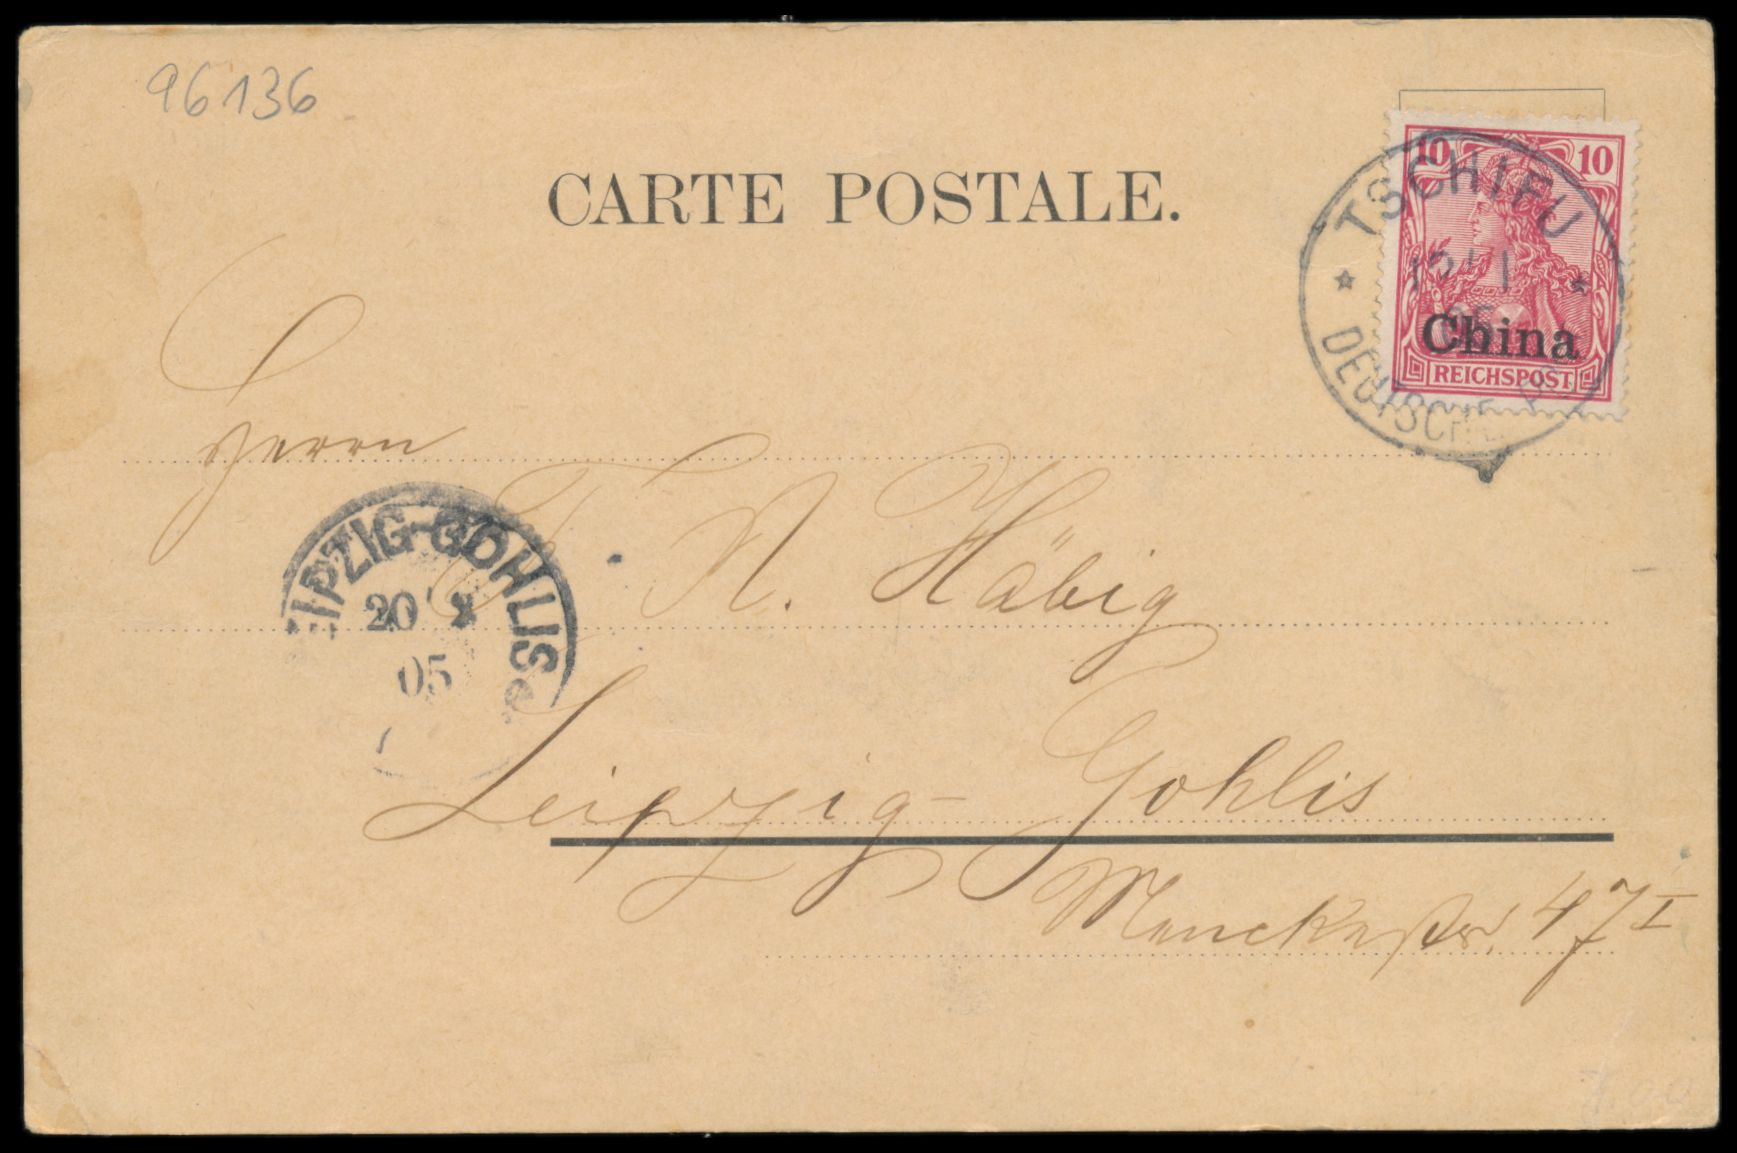 96136
CARTE POSTALE.
10 10
China
REICHSPOST
TSCHIFU
05
DEUTSCHE
Herrn
F. A. Häbig
LEIPZIG-GOHLIS
20 2
05
Leipzig-Gohlis
Menckestr. 47 I